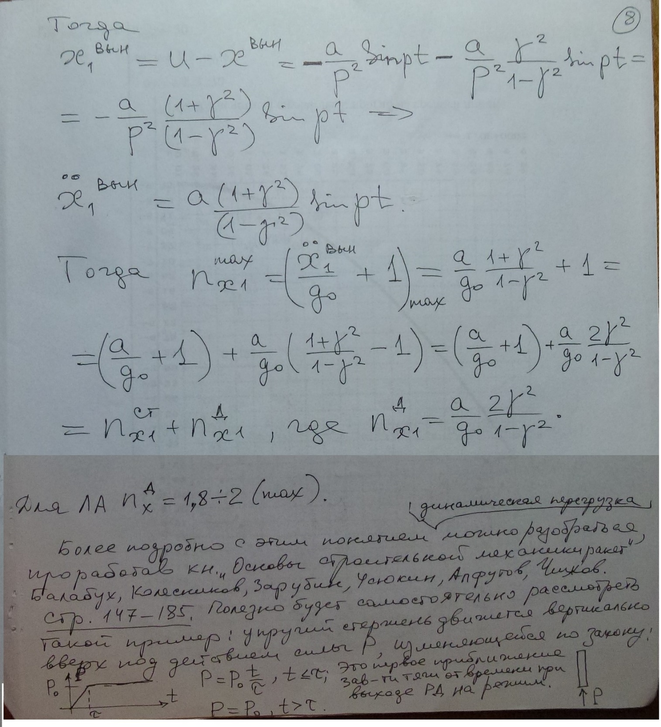 8
Тогда
x₁^вын = u − x^вын = −a/p² sin pt − a/p² γ²/(1−γ²) sin pt =
= −a/p² (1+γ²)/(1−γ²) sin pt ⇒
ẍ₁^вын = a (1+γ²)/(1−γ²) sin pt.
Тогда n_x1^max = (ẍ₁^вын/g₀ + 1)_max = a/g₀ (1+γ²)/(1−γ²) + 1 =
= (a/g₀ + 1) + a/g₀ ((1+γ²)/(1−γ²) − 1) = (a/g₀ + 1) + a/g₀ 2γ²/(1−γ²)
= n_x1^ст + n_x1^д, где n_x1^д = a/g₀ 2γ²/(1−γ²).
Для ЛА n_x^д = 1,8÷2 (max).
динамическая перегрузка
Более подробно с этим понятием можно разобраться,
проработав кн. „Основы строительной механики ракет",
Балабух, Колесников, Зарубин, Усюкин, Алфутов, Чижов.
Стр. 147–185. Полезно будет самостоятельно рассмотреть
такой пример: упругий стержень движется вертикально
вверх под действием силы P, изменяющейся по закону:
P = P₀ t/τ, t ≤ τ; это первое приближение
зав-ти тяги от времени при
выходе РД на режим.
P = P₀, t > τ.
P
P₀
τ
t
P